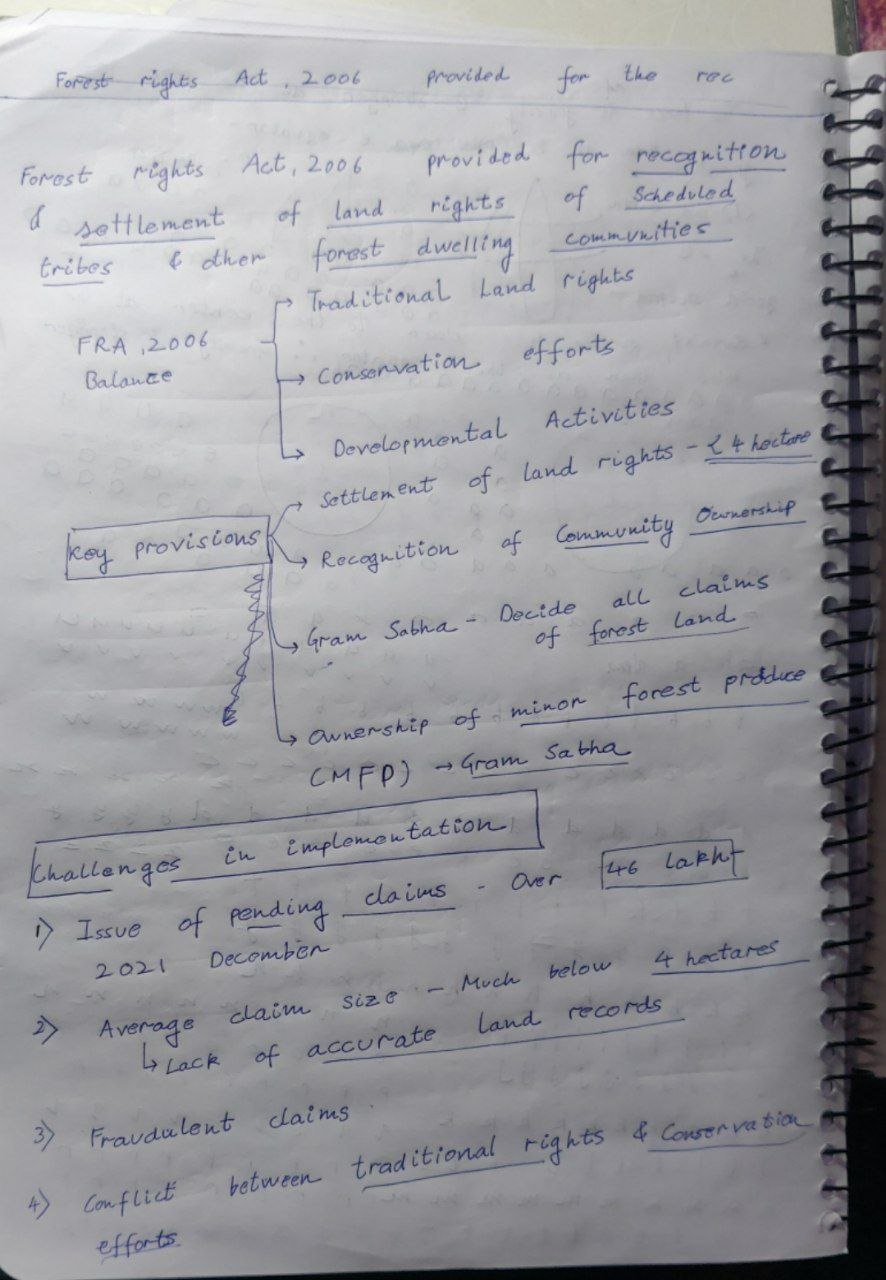 Forest rights Act, 2006 provided for the rec
Forest rights Act, 2006 provided for recognition
& settlement of land rights of Scheduled
tribes & other forest dwelling communities
FRA, 2006
Balance
Traditional Land rights
Conservation efforts
Developmental Activities
Key provisions
Settlement of land rights - < 4 hectare
Recognition of Community Ownership
Gram Sabha - Decide all claims
of forest land
Ownership of minor forest produce
(MFP) → Gram Sabha
Challenges in implementation
1) Issue of pending claims - Over 46 lakh
2021 December
2) Average claim size - Much below 4 hectares
↳ Lack of accurate land records
3) Fraudulent claims
4) Conflict between traditional rights & Conservation
efforts